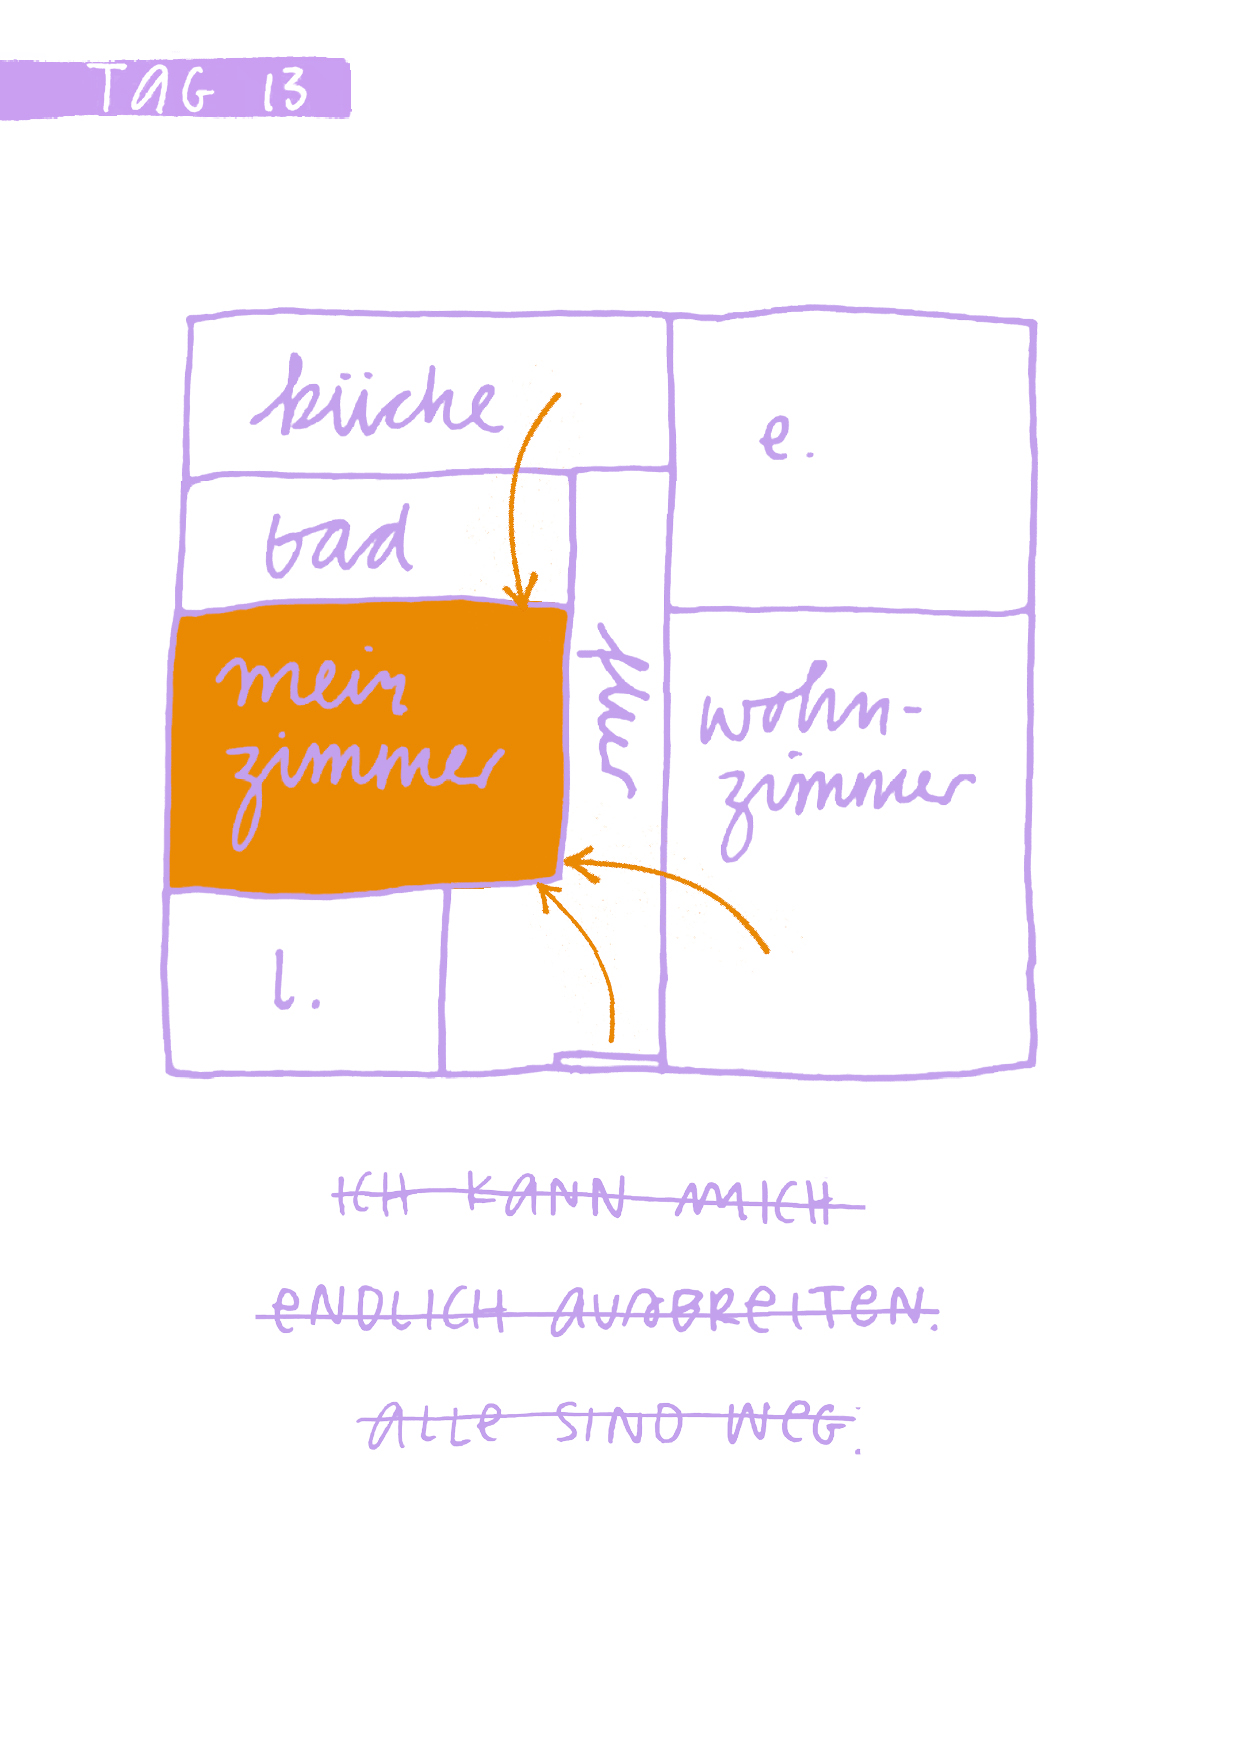 TAG 13
küche
e.
bad
mein
zimmer
flur
wohn-
zimmer
l.
ICH KANN MICH
ENDLICH AUSBREITEN.
ALLE SIND WEG.